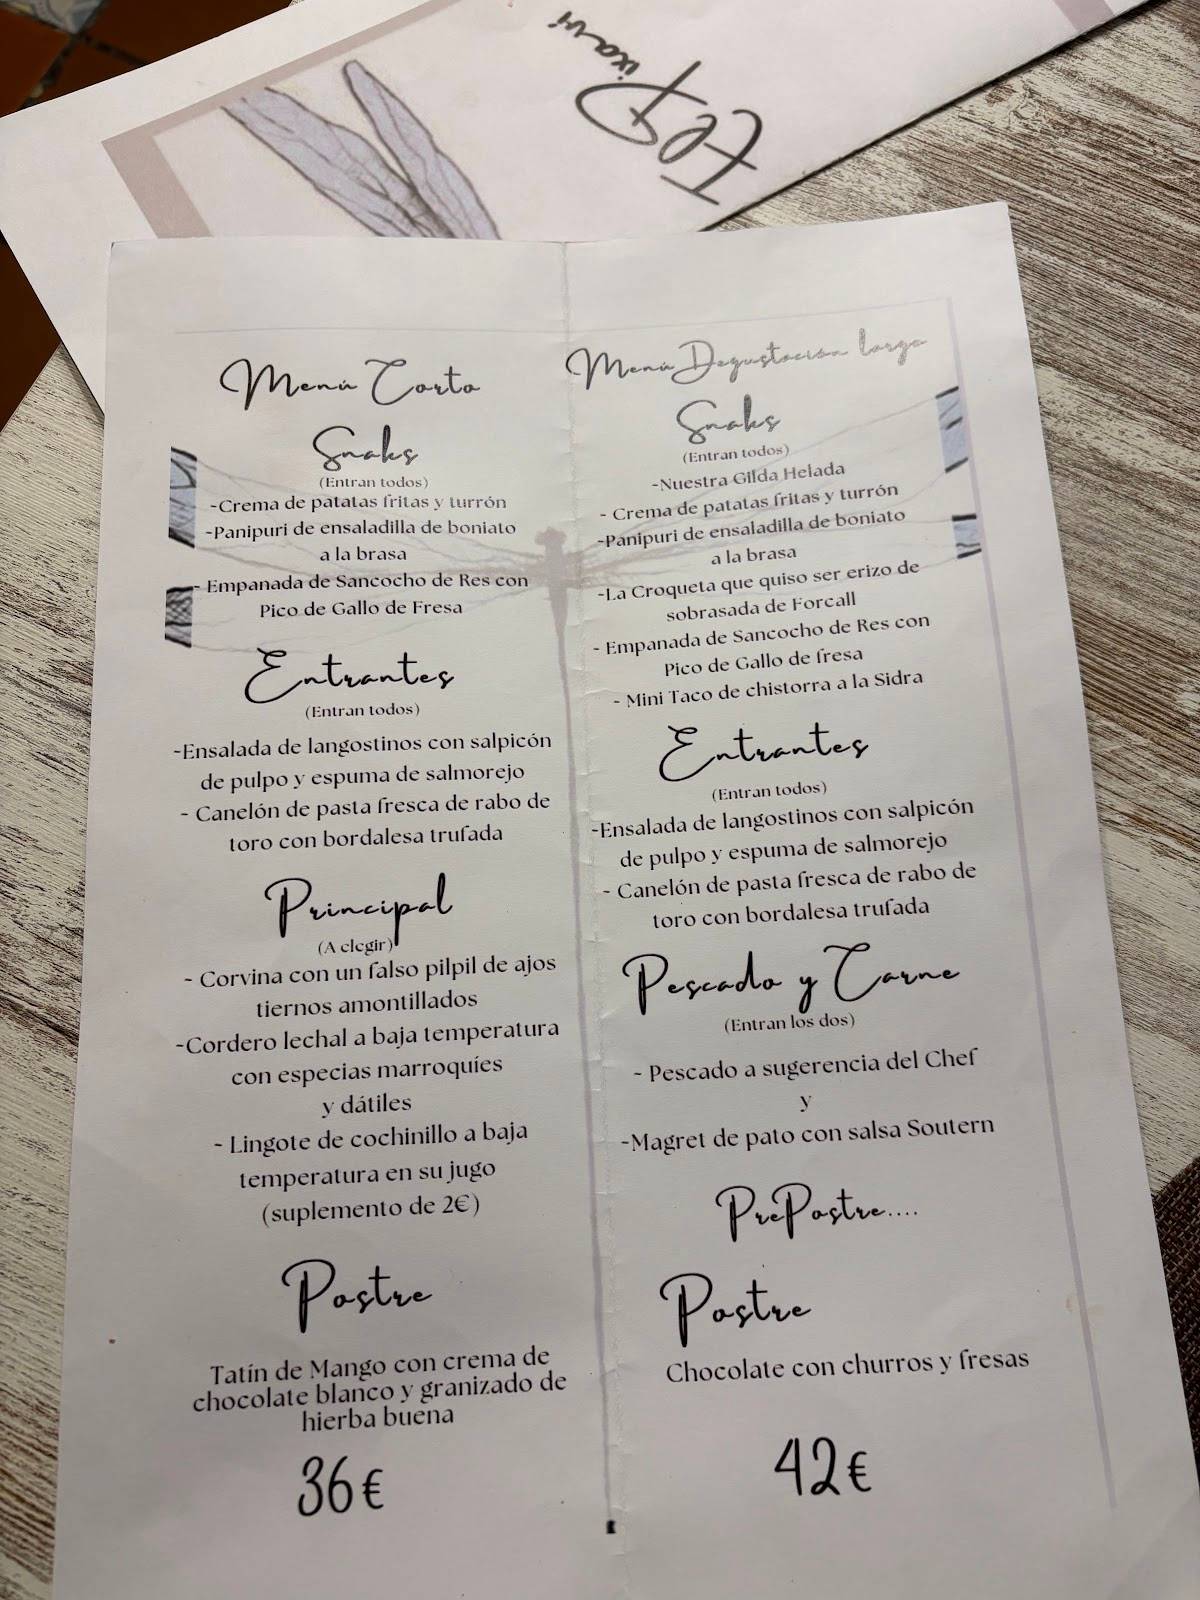 El Pixaví
Menú Corto
Snaks
(Entran todos)
-Crema de patatas fritas y turrón
-Panipuri de ensaladilla de boniato
a la brasa
- Empanada de Sancocho de Res con
Pico de Gallo de Fresa
Entrantes
(Entran todos)
-Ensalada de langostinos con salpicón
de pulpo y espuma de salmorejo
- Canelón de pasta fresca de rabo de
toro con bordalesa trufada
Principal
(A elegir)
- Corvina con un falso pilpil de ajos
tiernos amontillados
-Cordero lechal a baja temperatura
con especias marroquíes
y dátiles
- Lingote de cochinillo a baja
temperatura en su jugo
(suplemento de 2€)
Postre
Tatín de Mango con crema de
chocolate blanco y granizado de
hierba buena
36€
Menú Degustación largo
Snaks
(Entran todos)
-Nuestra Gilda Helada
- Crema de patatas fritas y turrón
-Panipuri de ensaladilla de boniato
a la brasa
-La Croqueta que quiso ser erizo de
sobrasada de Forcall
- Empanada de Sancocho de Res con
Pico de Gallo de fresa
- Mini Taco de chistorra a la Sidra
Entrantes
(Entran todos)
-Ensalada de langostinos con salpicón
de pulpo y espuma de salmorejo
- Canelón de pasta fresca de rabo de
toro con bordalesa trufada
Pescado y Carne
(Entran los dos)
- Pescado a sugerencia del Chef
y
-Magret de pato con salsa Soutern
PrePostre....
Postre
Chocolate con churros y fresas
42€